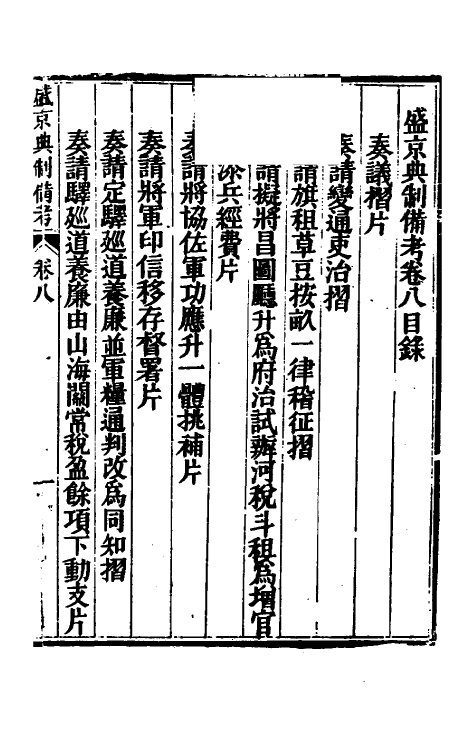 盛京典制備考卷八目錄
奏議摺片
奏請變通吏治摺
請旗租草豆按畝一律稽征摺
請擬將昌圖廳升為府治試辦河稅斗租為增官
添兵經費片
奏請將協佐軍功應升一體挑補片
奏請將軍印信移存督署片
奏請定驛廵道養廉並軍糧通判改為同知摺
奏請驛廵道養廉由山海關常稅盈餘項下動支片
盛京典制備考 卷八 一